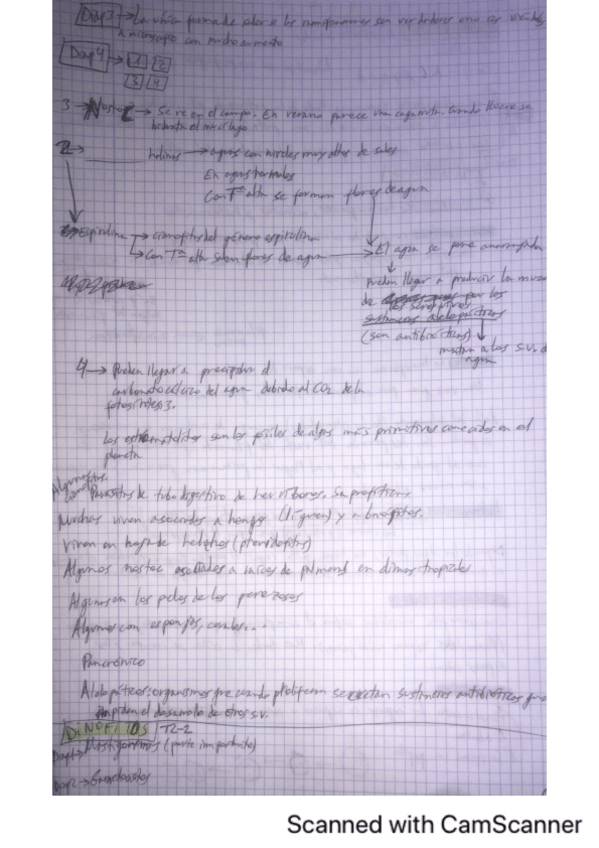 Diap 3 → La única forma de saber si los son verdaderos o no es
a microscopio con mucho aumento
Diap 4 → 1 2
3 4
3 → Nostoc → Se ve en el campo. En verano parece una cagarruta. Cuando llueve se
hidrata el mucílago
2 → halinas → aguas con niveles muy altos de sales
En aguas termales
Con Tª alta se forman flores de agua
Espirulina → cianofitas del género espirulina
→ Con Tª alta salen flores de agua → El agua se pone
Pueden llegar a producir la muerte
de por los
sustancias alelopáticas
(son antibióticas)
matan a los s.v. de
agua
4 → Pueden llegar a precipitar el
carbonato cálcico del agua debido al CO2 de la
fotosíntesis.
Los estromatolitos son los fósiles de algas más primitivos conocidos en el
planeta
Algunas
Parásitos de tubo digestivo de herbívoros. Saprofíticas
Muchas viven asociadas a hongos (líquen) y a briofitos.
Viven en hojas de helechos (pteridofitas)
Algunos nostoc asociados a raíces de palmeras en climas tropicales
Algunas en los pelos de los perezosos
Algunas con esponjas, corales...
Pancrónico
Alelopáticos: organismos que cuando proliferan secretan sustancias antibióticas que
impiden el desarrollo de otros s.v.
DINOFITAS T2-2
Diap 1 → Mastigonemas (parte importante)
Diap 2 →